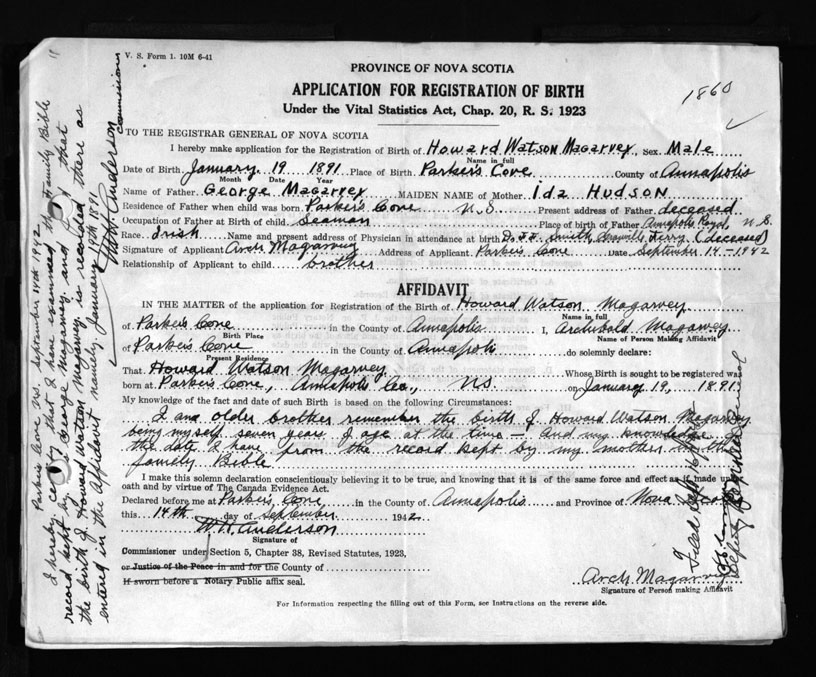 V. S. Form 1. 10M 6-41
PROVINCE OF NOVA SCOTIA
APPLICATION FOR REGISTRATION OF BIRTH
Under the Vital Statistics Act, Chap. 20, R. S. 1923
1860
TO THE REGISTRAR GENERAL OF NOVA SCOTIA
I hereby make application for the Registration of Birth of Howard Watson Magarvey, Sex Male
Name in full
Date of Birth January 19 1891 Place of Birth Parker's Cove County of Annapolis
Month Date Year
Name of Father George Magarvey MAIDEN NAME of Mother Ida Hudson
Residence of Father when child was born Parker's Cove N.S. Present address of Father deceased
Occupation of Father at Birth of child Seaman Place of birth of Father Annapolis Royal, N.S.
Race Irish Name and present address of Physician in attendance at birth Smith, Granville Ferry (deceased)
Signature of Applicant Arch Magarvey Address of Applicant Parkers Cove Date September 14-1942
Relationship of Applicant to child brother
AFFIDAVIT
IN THE MATTER of the application for Registration of the Birth of Howard Watson Magarvey
Name in full
of Parkers Cove in the County of Annapolis I, Archibald Magarvey
Birth Place Name of Person Making Affidavit
of Parkers Cove in the County of Annapolis do solemnly declare:
Present Residence
That Howard Watson Magarvey Whose Birth is sought to be registered was
born at Parkers Cove, Annapolis Co., N.S. on January 19, 1891
My knowledge of the fact and date of such Birth is based on the following Circumstances:
I am older brother remember the birth of Howard Watson Magarvey
being myself seven years of age at the time - and my knowledge of
the date I have from the record kept by my mother in the
family Bible
I make this solemn declaration conscientiously believing it to be true, and knowing that it is of the same force and effect as if made under
oath and by virtue of The Canada Evidence Act.
Declared before me at Parkers Cove in the County of Annapolis and Province of Nova Scotia
this 14th day of September 1942
W.H. Anderson
Signature of
Commissioner under Section 5, Chapter 38, Revised Statutes, 1923,
or Justice of the Peace in and for the County of
If sworn before a Notary Public affix seal.
Arch Magarvey
Signature of Person making Affidavit
For Information respecting the filling out of this Form, see Instructions on the reverse side.
Parkers Cove N.S. September 14th 1942
I hereby certify that I have examined the Family Bible
record kept by Mrs George Magarvey and find that
the birth of Howard Watson Magarvey is recorded there as
entered in the Affidavit namely, January 19th 1891
W.H. Anderson
Commissioner
Filed
Deputy Registrar General